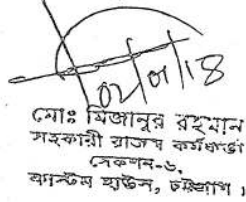 ০২/০৮/১৪
মোঃ মিজানুর রহমান
সহকারী রাজস্ব কর্মকর্তা
সেকশন-৬,
কাস্টম হাউস, চট্টগ্রাম।